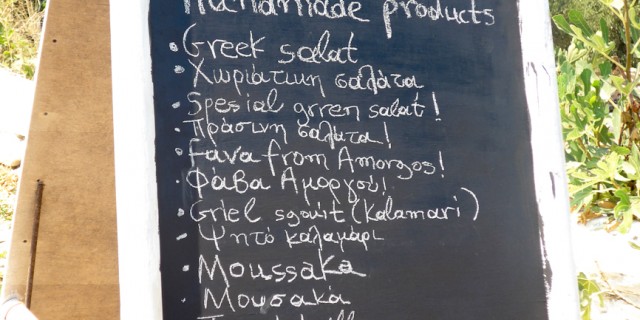 Handmade products
• Greek salat
• Χωριάτικη σαλάτα
• Spesial grren salat!
• Πράσινη σαλατα!
• fava from Amorgos!
• Φάβα Αμοργού!
• Griel sgouit (Kalamari)
- Ψητό καλαμάρι
• Moussaka
• Μουσακά